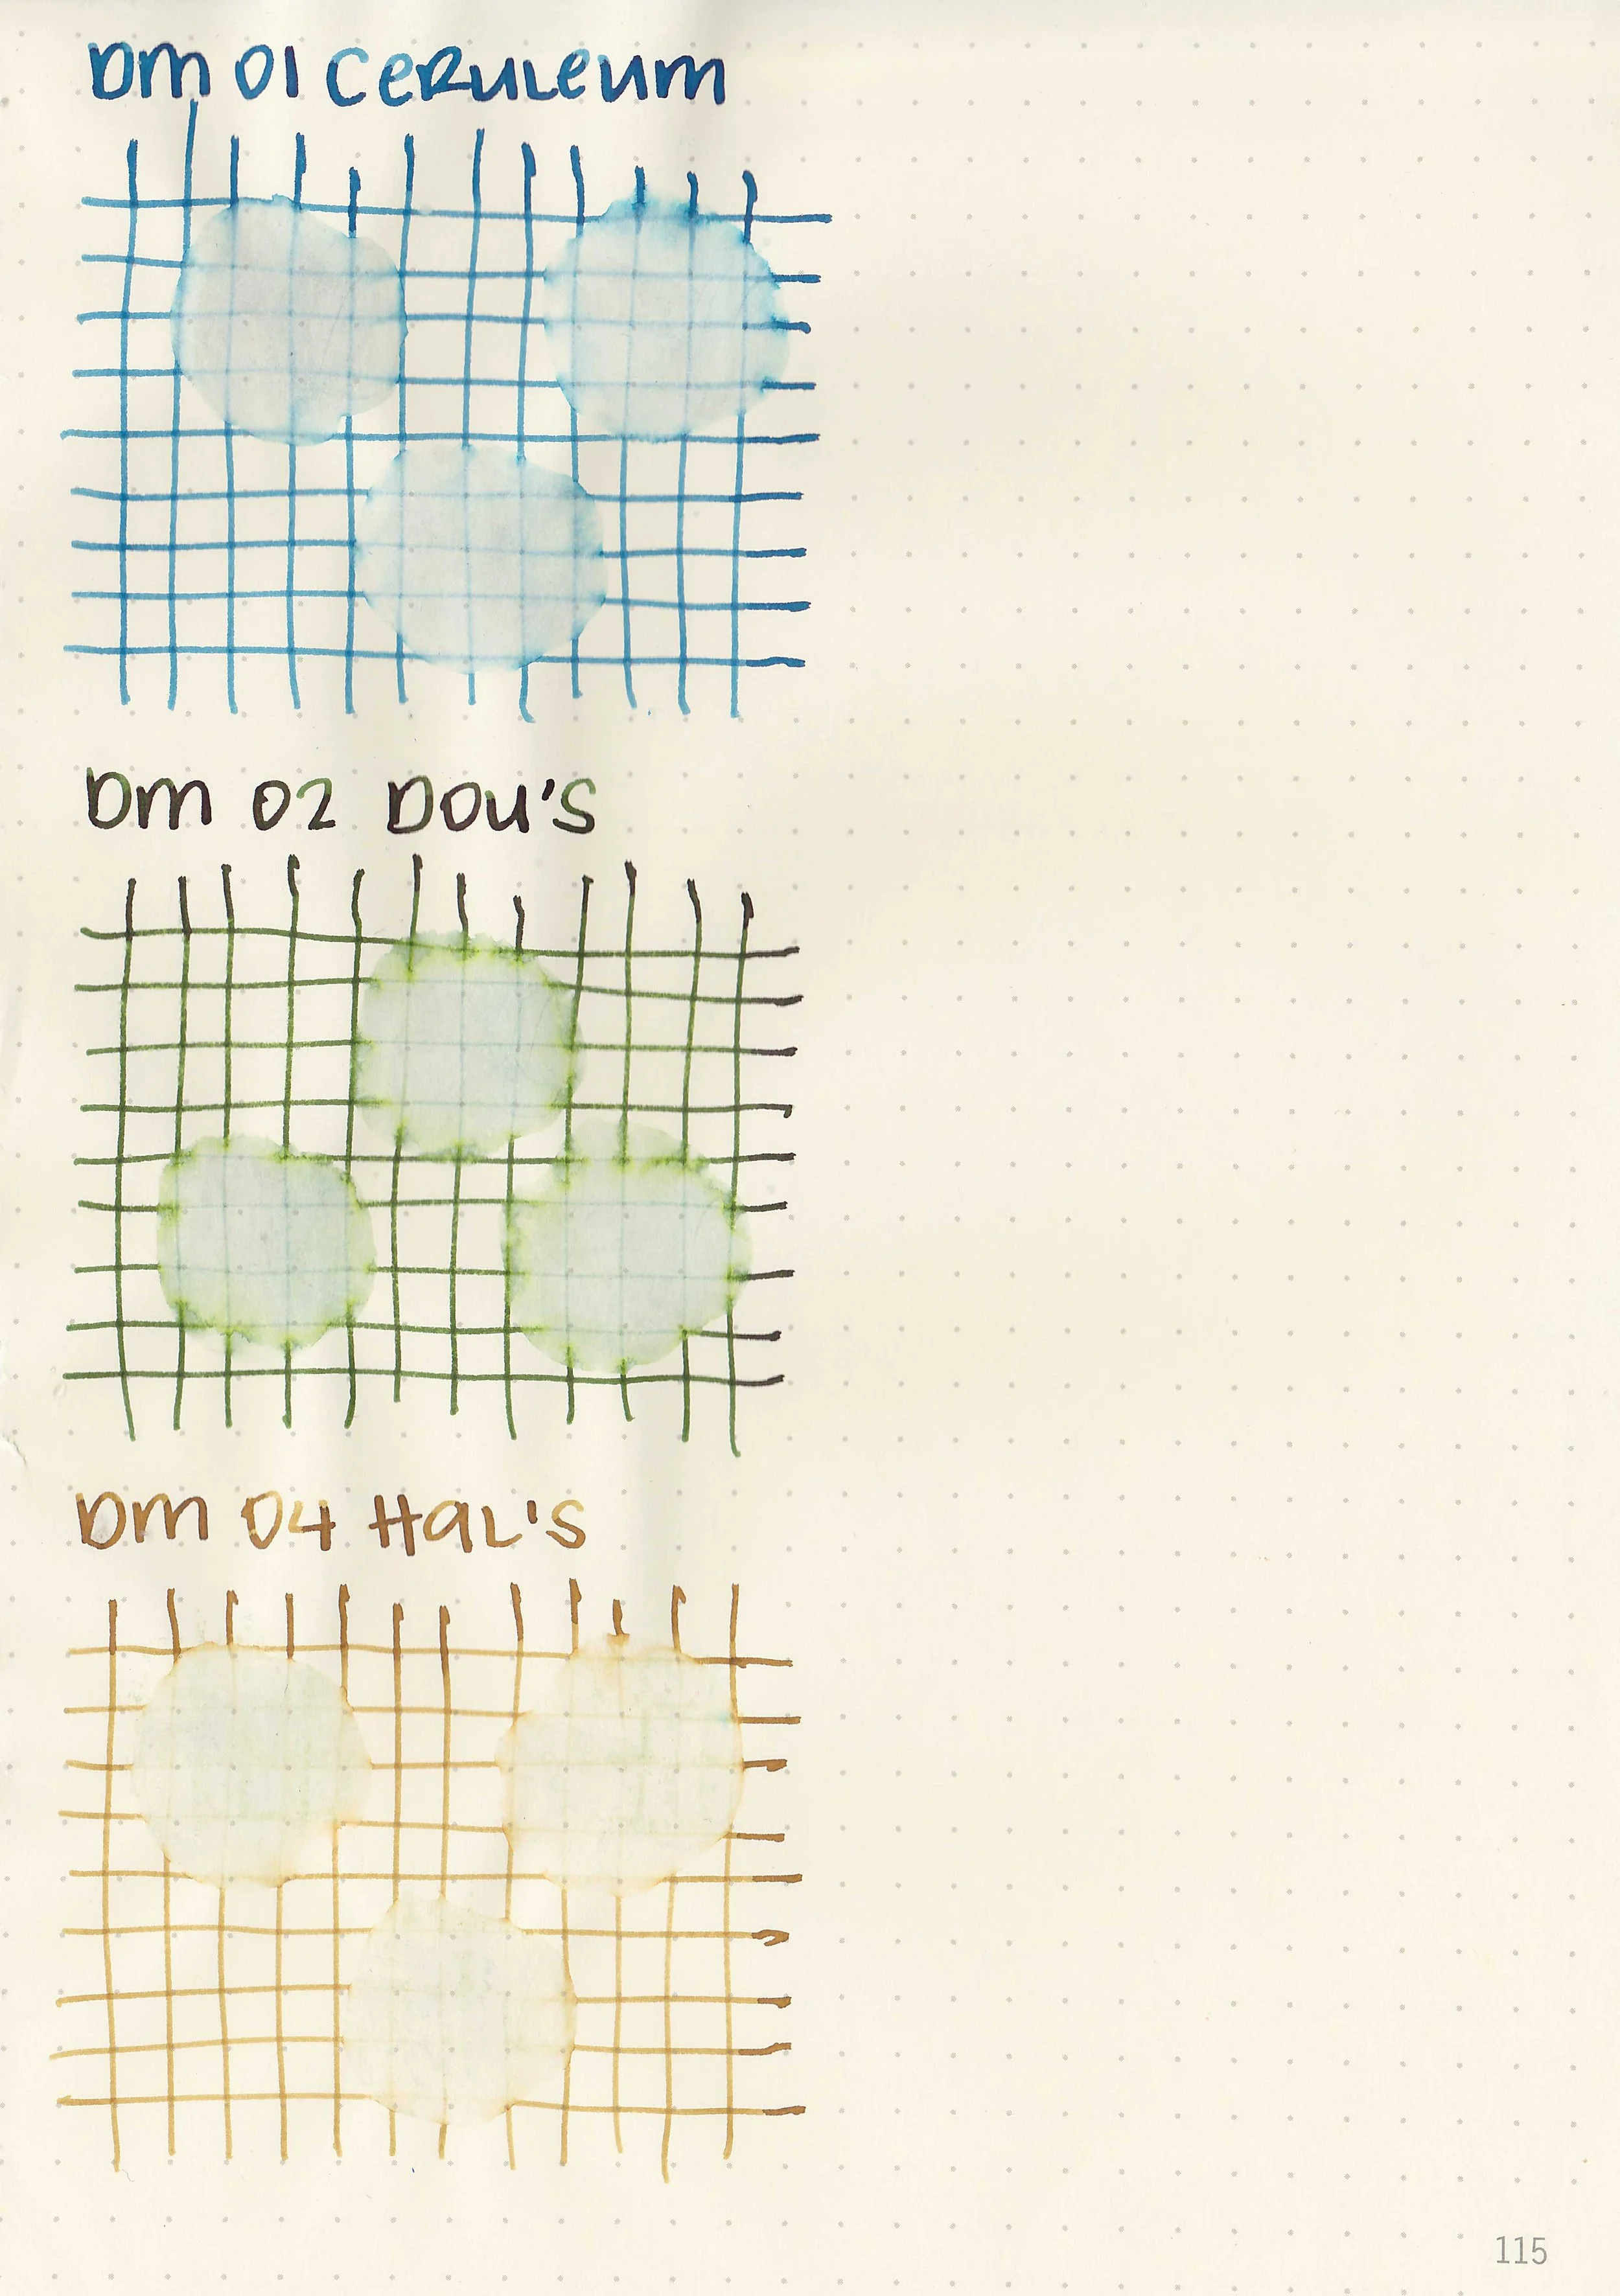 Dm 01 Ceruleum
Dm 02 Dou's
Dm 04 Hal's
115